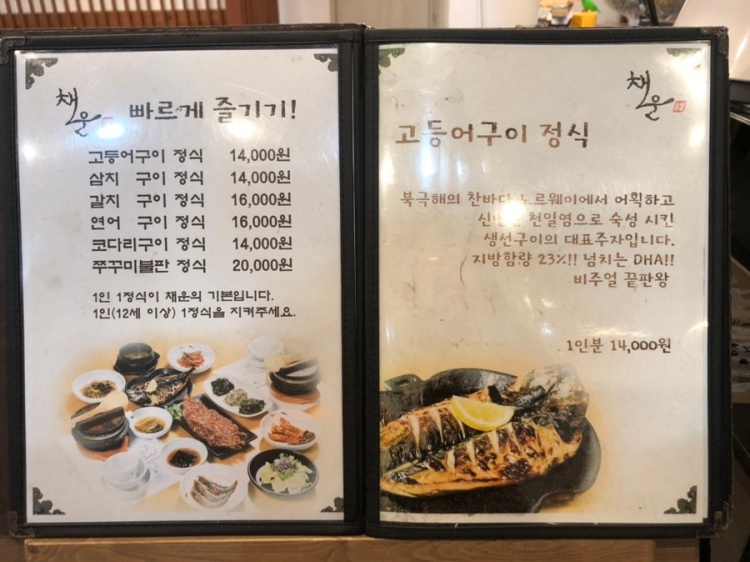 채울 빠르게 즐기기!
고등어구이 정식 14,000원
삼치 구이 정식 14,000원
갈치 구이 정식 16,000원
연어 구이 정식 16,000원
코다리구이 정식 14,000원
쭈꾸미불판 정식 20,000원
1인 1정식이 채운의 기본입니다.
1인(12세 이상) 1정식을 지켜주세요.
채울
고등어구이 정식
북극해의 찬바다 노르웨이에서 어획하고
천일염으로 숙성 시킨
생선구이의 대표주자입니다.
지방함량 23%!! 넘치는 DHA!!
비주얼 끝판왕
1인분 14,000원